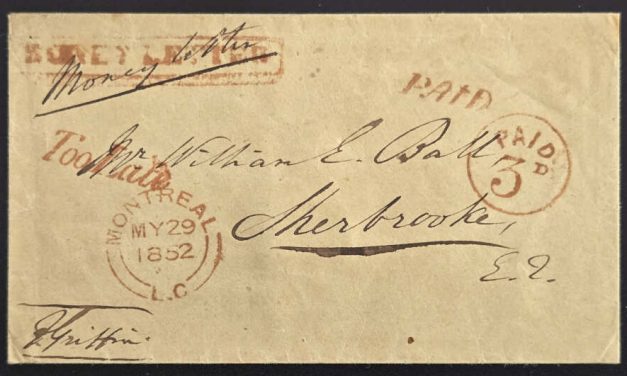 MONEY LETTER
Money Letter
PAID
Too Late
Mr William E. Ball,
PAID
3D
Sherbrooke,
MONTREAL
MY 29
1852
L.C
E.T.
Griffin